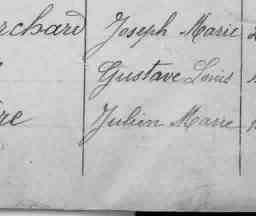 rchard Joseph Marie
Gustave Louis
re Julien Marie